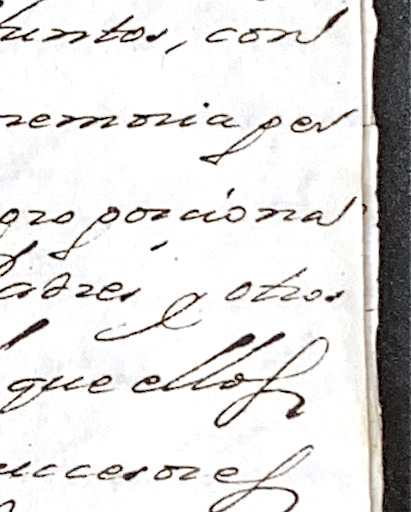 juntos, con
memoria per
groporcional
adres y otros
que ellos
uccesores